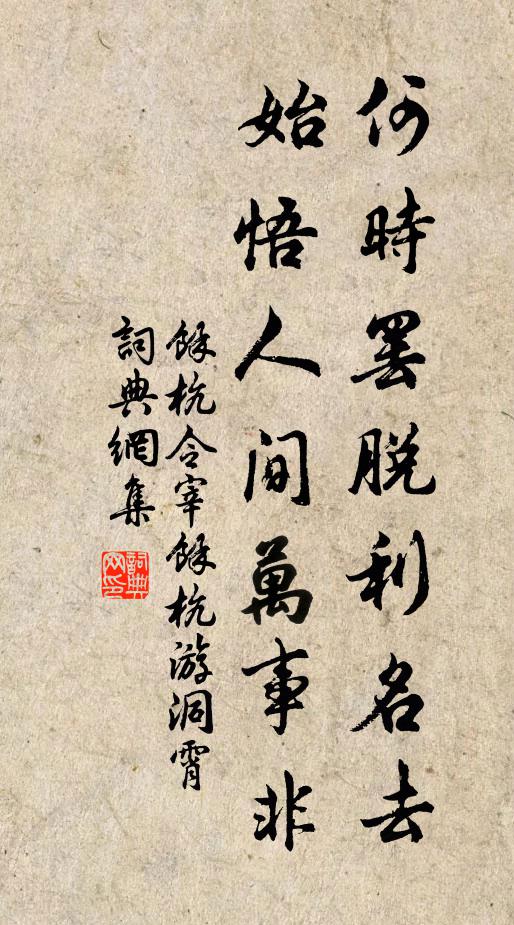 何時罢脱利名去
始悟人间萬事非
餘杭令宰餘杭游洞霄
詞典網集
詞典
网印